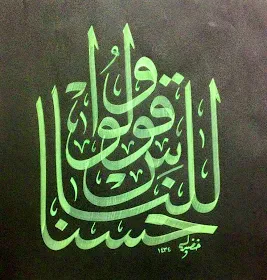 وقولوا
للناس
حسنا
١٤٣٤